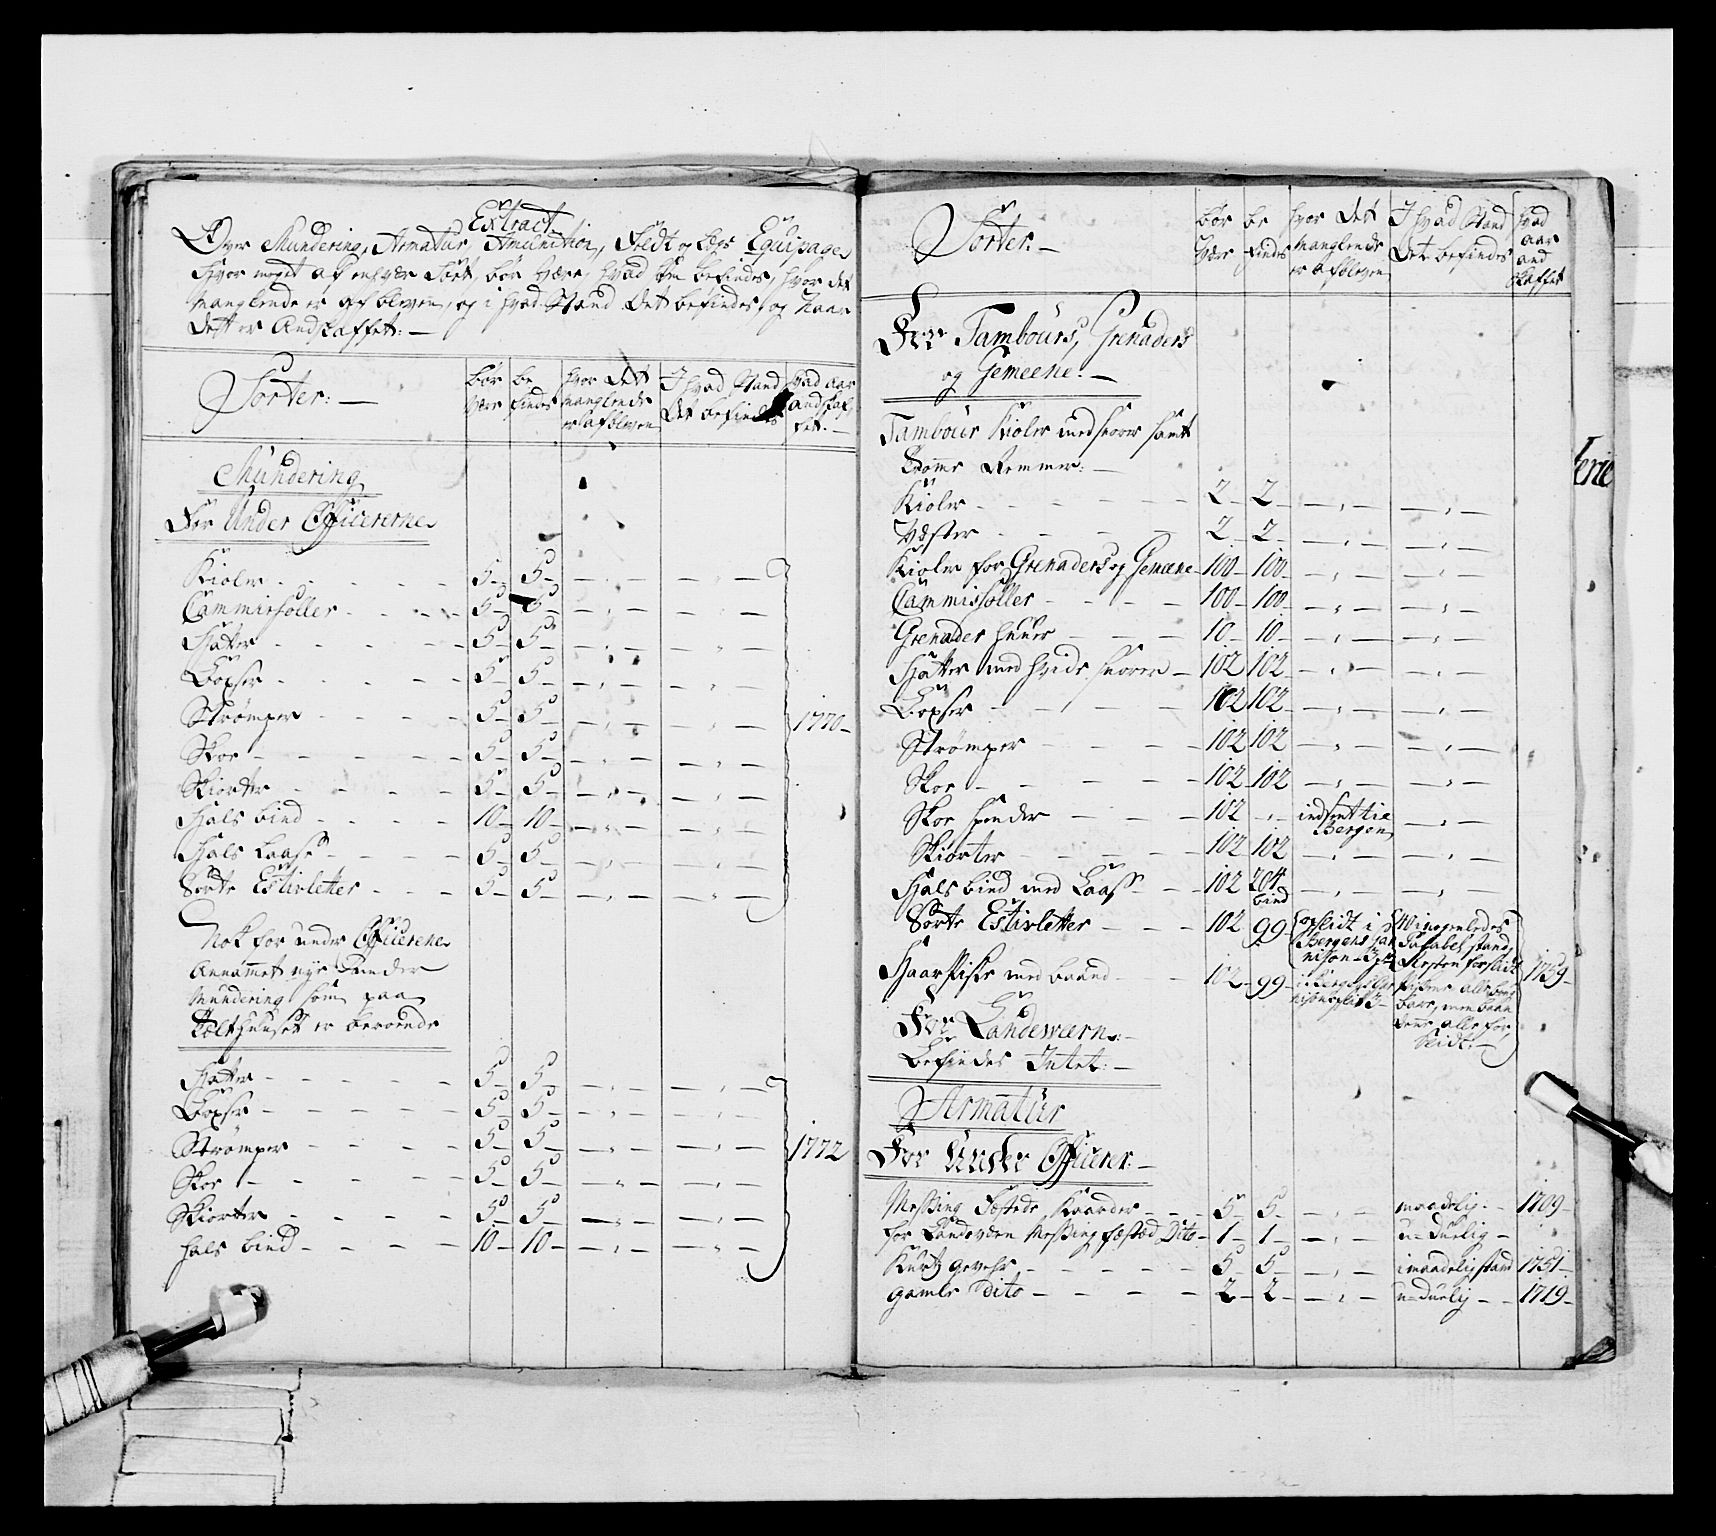 Extract
Over Mundering, Armatur, Amunition, Feldt og Læge Equipage
Hvor meget af enhver Sort, bør være, hvad som befindes, hvor det
manglende er afbleven, og i hvad Stand det befindes, og Naar
dett er Andskaffet: —
Sorter: — bør være be findes hvor dett manglende er afbleven I hvad Stand det befindes hvad aar andskaffet: —
Mundering
For Under Officererne
Kioler - - - 5 — 5 —
Cammissoller - - - 5 — 5 —
Hatter - - - 5 — 5 —
Boxser - - - 5 — 5 —
Strømper - - - 5 — 5 — 1770 —
Skoe - - - 5 — 5 —
Skiorter - - - 5 — 5 —
Hals bind - - - 10 — 10 —
Hals Laase - - - 5 — 5 —
Sorte Estivletter - - - 5 — 5 —
Nok for under Officerene
Annammet nye Under
Mundering som paa
Tølthuuset er beroende
Hatter - - - 5 — 5 —
Boxser - - - 5 — 5 —
Strømper - - - 5 — 5 — 1772
Skoe - - - 5 — 5 —
Skiorter - - - 5 — 5 —
hals bind - - - 10 — 10 —
Sorter. — bør være be findes hvor dett manglende er afbleven I hvad Stand det befindes hvad aar and skaffet
For Tambours, Grenaders
og Gemeene: —
Tambour Kioler med snorer samt
Tromme Remmer: —
Kioler - - - 2 — 2 —
Væster - - - 2 — 2 —
Kioler for Grenaders og Gemeene 100 — 100 —
Cammissoller - - - 100 — 100 —
Grenader huuer - - - 10 — 10 —
Hatter med hvide snorer — 102 102
Boxser - - - 102 102
Strømper - - - 102 102
Skoe - - - 102 102
Skoe spender - - - 102 — indsent til Bergen
Skiorter - - - 102 102
Hals bind med Laass - - 102 204 bind
Sorte Estivletter - - - 102 99 opslidt i Bergens Garnison 3 Winogenledes Passabel stand, Resten forslidt
Haar Piske med baand - - 102 99 i Bergens Garnison slidt 3 — Piskene alle brugbare, men baandene alle forslidt: — 1759 —
For Landeværn: —
Befindes Intet: —
Armatur
For Under Officerer: —
Messing Fæstede Kaarder - - 5 — 5 — maadelig — 1709 —
for Landværn Messing fæsted Dito — 1 — 1 — u=duelig —
Kurtz gevehr - - - 5 — 5 — i maadelig stand 1751 —
gamle Dito - - - 2 — 2 — u=duelig — 1719 —
erie